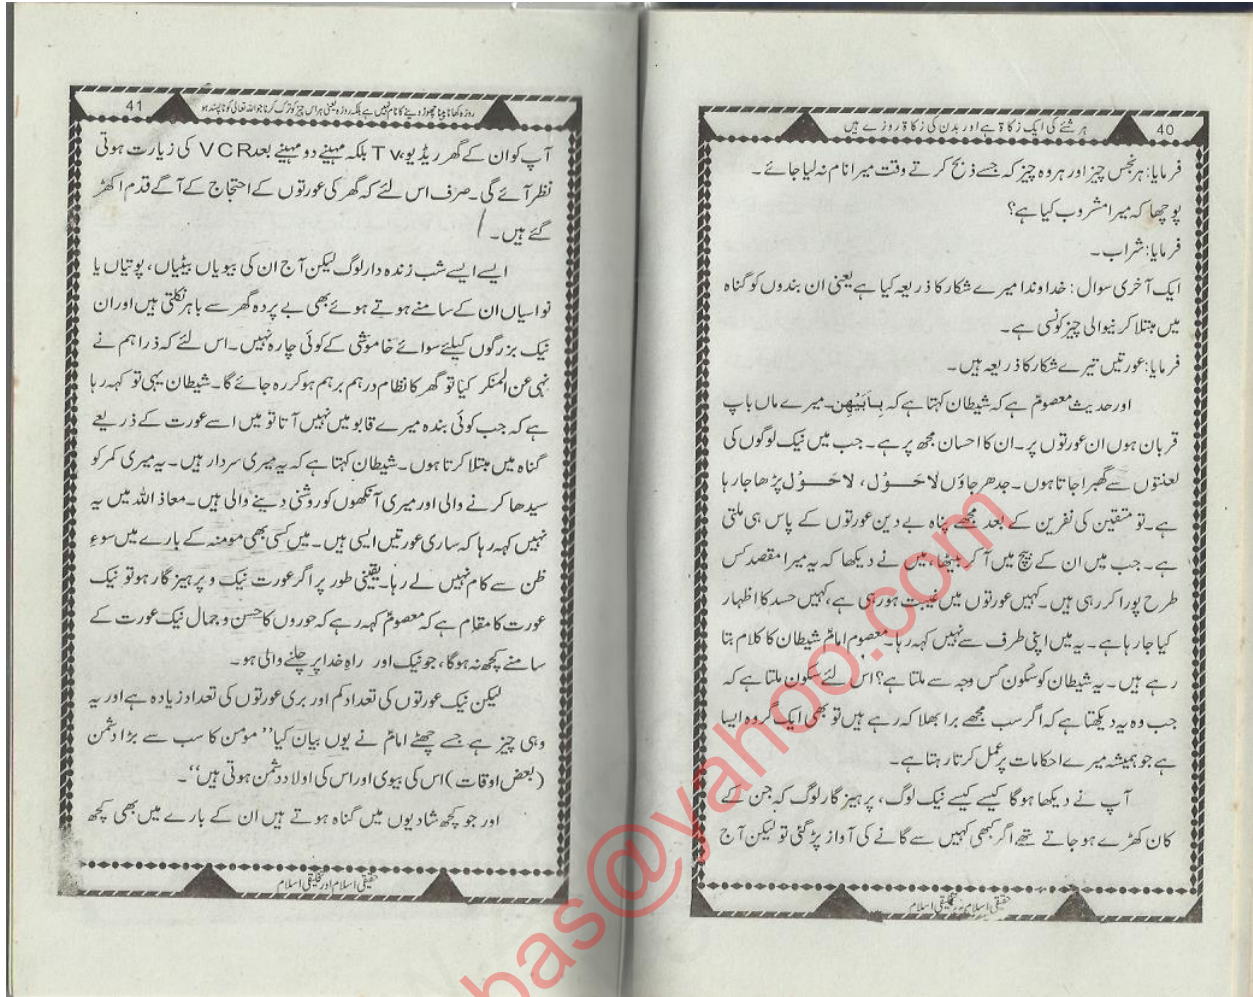 ہر شئے کی ایک زکاۃ ہے اور بدن کی زکاۃ روزے ہیں
40
فرمایا: ہر نجس چیز اور ہر وہ چیز کہ جسے ذبح کرتے وقت میرا نام نہ لیا جائے۔
پوچھا کہ میرا مشروب کیا ہے؟
فرمایا: شراب۔
ایک آخری سوال: خداوندا میرے شکار کا ذریعہ کیا ہے یعنی ان بندوں کو گناہ
میں مبتلا کرنیوالی چیز کونسی ہے۔
فرمایا: عورتیں تیرے شکار کا ذریعہ ہیں۔
اور حدیث معصومؑ ہے کہ شیطان کہتا ہے کہ بِأَبَيْهِن۔ میرے ماں باپ
قربان ہوں ان عورتوں پر۔ ان کا احسان مجھ پر ہے۔ جب میں نیک لوگوں کی
لعنتوں سے گھبرا جاتا ہوں۔ جدھر جاؤں لا حَوْل، لا حَوْل پڑھا جا رہا
ہے۔ تو متقین کی نفرین کے بعد مجھے پناہ بے دین عورتوں کے پاس ہی ملتی
ہے۔ جب میں ان کے بیچ میں آ کر بیٹھا، میں نے دیکھا کہ یہ میرا مقصد کس
طرح پورا کر رہی ہیں۔ کہیں عورتوں میں غیبت ہو رہی ہے، کہیں حسد کا اظہار
کیا جا رہا ہے۔ یہ میں اپنی طرف سے نہیں کہہ رہا۔ معصوم امامؑ شیطان کا کلام بتا
رہے ہیں۔ یہ شیطان کو سکون کس وجہ سے ملتا ہے؟ اس لئے سکون ملتا ہے کہ
جب وہ یہ دیکھتا ہے کہ اگر سب مجھے برا بھلا کہہ رہے ہیں تو بھی ایک گروہ ایسا
ہے جو ہمیشہ میرے احکامات پر عمل کرتا رہتا ہے۔
آپ نے دیکھا ہوگا کیسے کیسے نیک لوگ، پرہیز گار لوگ کہ جن کے
کان کھڑے ہو جاتے تھے، اگر کبھی کہیں سے گانے کی آواز پڑ گئی تو لیکن آج
حقیقی اسلام
41
روزہ کھانا پینا چھوڑ دینے کا نام نہیں ہے بلکہ روزہ یعنی ہر اس چیز کو ترک کرنا جو اللہ تعالیٰ کو ناپسند ہو
آپ کو ان کے گھر ریڈیو، Tv بلکہ مہینے دو مہینے بعد VCR کی زیارت ہوتی
نظر آئے گی۔ صرف اس لئے کہ گھر کی عورتوں کے احتجاج کے آگے قدم اکھڑ
گئے ہیں۔
ایسے ایسے شب زندہ دار لوگ لیکن آج ان کی بیویاں بیٹیاں، پوتیاں یا
نواسیاں ان کے سامنے ہوتے ہوئے بھی بے پردہ گھر سے باہر نکلتی ہیں اور ان
نیک بزرگوں کیلئے سوائے خاموشی کے کوئی چارہ نہیں۔ اس لئے کہ ذرا ہم نے
نہی عن المنکر کیا تو گھر کا نظام درہم برہم ہو کر رہ جائے گا۔ شیطان یہی تو کہہ رہا
ہے کہ جب کوئی بندہ میرے قابو میں نہیں آتا تو میں اسے عورت کے ذریعے
گناہ میں مبتلا کرتا ہوں۔ شیطان کہتا ہے کہ یہ میری سردار ہیں۔ یہ میری کمر کو
سیدھا کرنے والی اور میری آنکھوں کو روشنی دینے والی ہیں۔ معاذ اللہ میں یہ
نہیں کہہ رہا کہ ساری عورتیں ایسی ہیں۔ میں کسی بھی مومنہ کے بارے میں سوءِ
ظن سے کام نہیں لے رہا۔ یقینی طور پر اگر عورت نیک و پرہیز گار ہو تو نیک
عورت کا مقام ہے کہ معصومؑ کہہ رہے کہ حوروں کا حسن و جمال نیک عورت کے
سامنے کچھ نہ ہوگا، جو نیک اور راہِ خدا پر چلنے والی ہو۔
لیکن نیک عورتوں کی تعداد کم اور بری عورتوں کی تعداد زیادہ ہے اور یہ
وہی چیز ہے جسے چھٹے امامؑ نے یوں بیان کیا ’’مومن کا سب سے بڑا دشمن
(بعض اوقات) اس کی بیوی اور اس کی اولاد دشمن ہوتی ہیں‘‘۔
اور جو کچھ شادیوں میں گناہ ہوتے ہیں ان کے بارے میں بھی کچھ
حقیقی اسلام اور تخلیقی اسلام
bas@yahoo.com